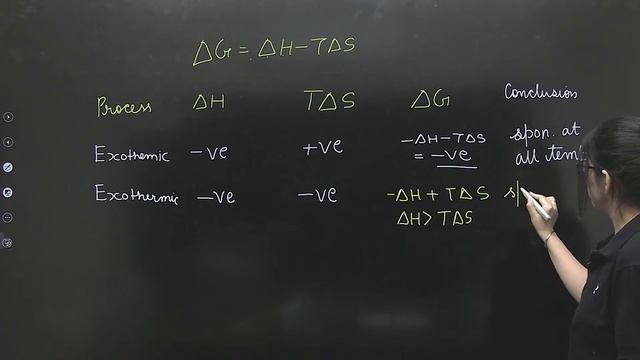 ΔG = ΔH - TΔS
Process ΔH TΔS ΔG Conclusion
Exothemic -ve +ve -ΔH - TΔS = -ve spon. at all tem
Exothermic -ve -ve -ΔH + TΔS
ΔH > TΔS